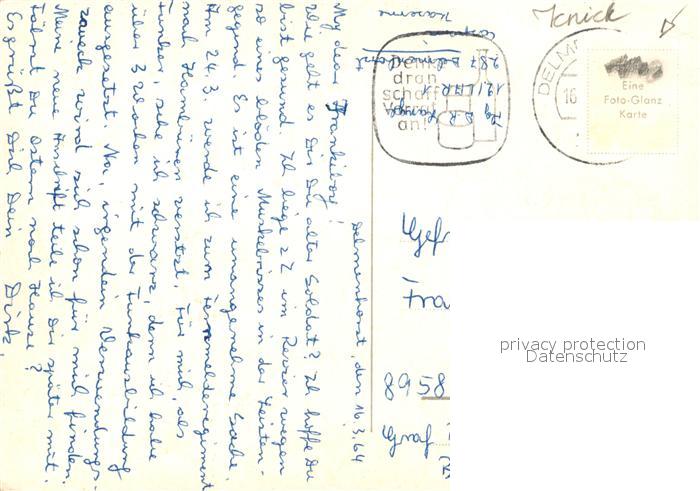 Delmenhorst, den 16.3.64
My dear Frankiboy!
Wie geht es Dir Du alter Soldat? Ich hoffe Du
bist gesund. Ich liege z Z im Revier wegen
so eines blöden Muskelrisses in der Leisten-
gegend. Es ist eine unangenehme Sache.
Am 24.3. werde ich zum Fernmelderegiment
nach versetzt. Für mich, als
Funker sehe ich schwarz, denn ich habe
über 3 Wochen mit der Funkausbildung
ausgesetzt. Na, irgendein Verwendungs-
zweck wird sich schon für mich finden.
Meine neue Anschrift teile ich Dir später mit.
Fährst Du Ostern nach Hause?
Es grüßt Dich Dein Dirk.
Knick
287 Delmenhorst
Kaserne
Denk
dran
schaff
Vorrat
an!
DELME
16
Eine
Foto-Glanz
Karte
Gefr
Fra
8958
Graf
privacy protection
Datenschutz